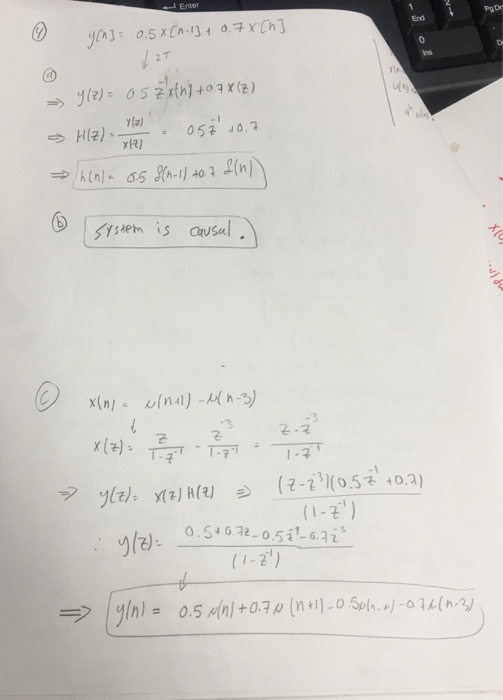 Enter
1
End
0
Ins
PgDn
④
y[n] = 0.5 x[n-1] + 0.7 x[n]
↓ ZT
ⓐ
⇒ y(z) = 0.5 z⁻¹ x(n) + 0.7 x(z)
⇒ H(z) = Y(z)/X(z) = 0.5z⁻¹ + 0.7
⇒ h(n) = 0.5 δ(n-1) + 0.7 δ(n)
ⓑ
System is causal.
ⓒ
x(n) = u(n+1) - u(n-3)
↓
x(z) = z/(1-z⁻¹) - z⁻³/(1-z⁻¹) = (z-z⁻³)/(1-z⁻¹)
⇒ y(z) = x(z) H(z) ⇒ (z-z⁻³)(0.5z⁻¹+0.7)/(1-z⁻¹)
∴ y(z) = (0.5+0.7z-0.5z⁻⁴-0.7z⁻³)/(1-z⁻¹)
↓
⇒ y(n) = 0.5 u(n) + 0.7 u(n+1) - 0.5u(n-4) - 0.7u(n-3)